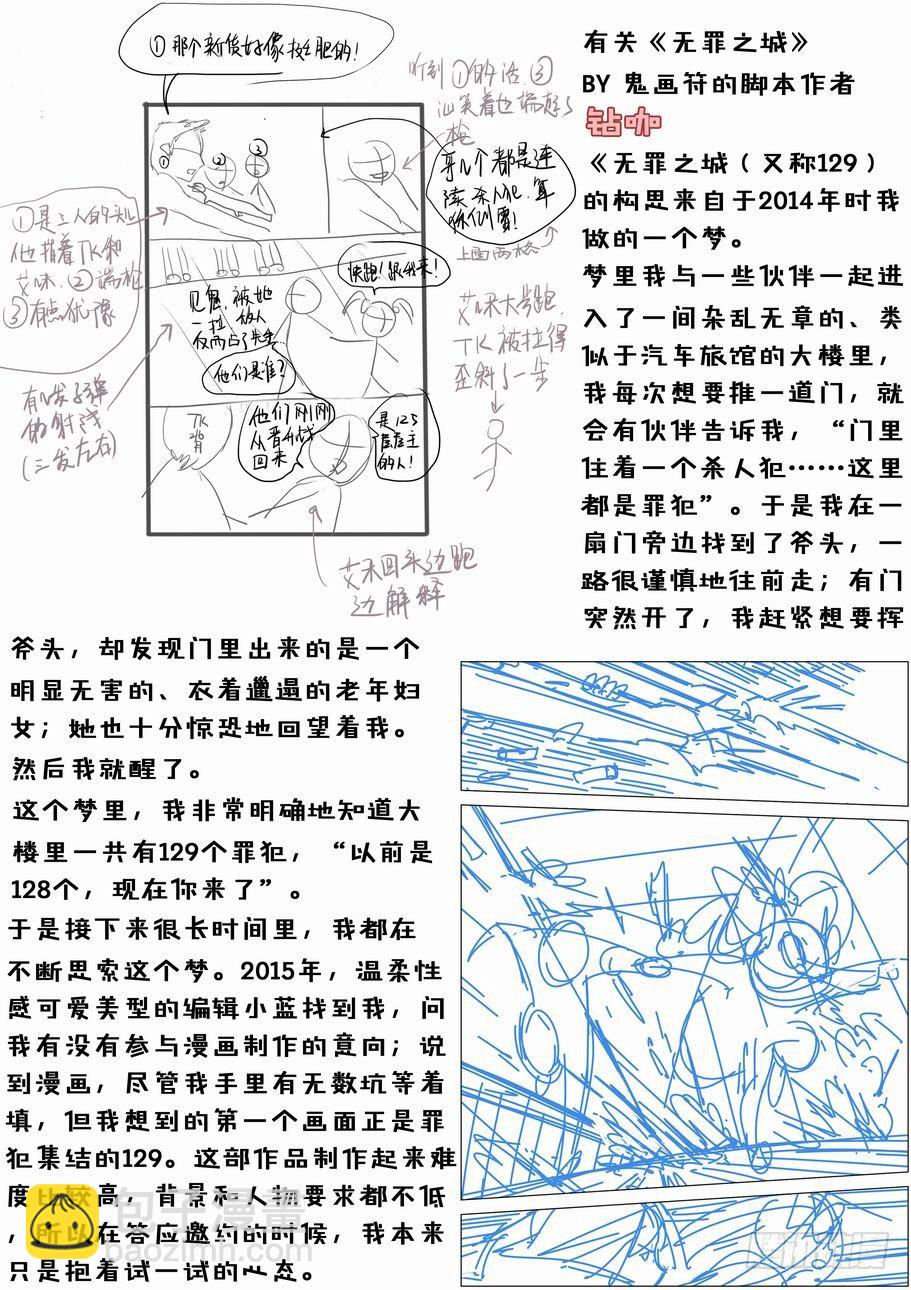 ①那个新
听到①的话③
汕笑着也端起了
枪
①
②
③
哥几个都是连
续杀人犯,算
上面两格
①是三人的头儿
他指着TK和
艾味.②端枪
③有点犹豫
快跑!跟我来!
见鬼,被她
一拉
他们是谁?
有几发子弹
的射线
(三发左右)
艾味大步跑,
TK被拉得
歪斜了一步
TK
他们刚刚
回来
是125
的人!
艾末回头边跑
边解释
有关《无罪之城》
BY 鬼画符的脚本作者
钻咖
《无罪之城(又称129)
的构思来自于2014年时我
做的一个梦。
梦里我与一些伙伴一起进
入了一间杂乱无章的、类
似于汽车旅馆的大楼里,
我每次想要推一道门,就
会有伙伴告诉我,“门里
住着一个杀人犯……这里
都是罪犯”。于是我在一
扇门旁边找到了斧头,一
路很谨慎地往前走;有门
突然开了,我赶紧想要挥
斧头,却发现门里出来的是一个
明显无害的、衣着邋遢的老年妇
女;她也十分惊恐地回望着我。
然后我就醒了。
这个梦里,我非常明确地知道大
楼里一共有129个罪犯,“以前是
128个,现在你来了”。
于是接下来很长时间里,我都在
不断思索这个梦。2015年,温柔性
感可爱美型的编辑小蓝找到我,问
我有没有参与漫画制作的意向;说
到漫画,尽管我手里有无数坑等着
填,但我想到的第一个画面正是罪
犯集结的129。这部作品制作起来难
度比较高,背景和人物要求都不低
,所以在答应邀约的时候,我本来
只是抱着试一试的心态。
包子漫畫
baozimh.com